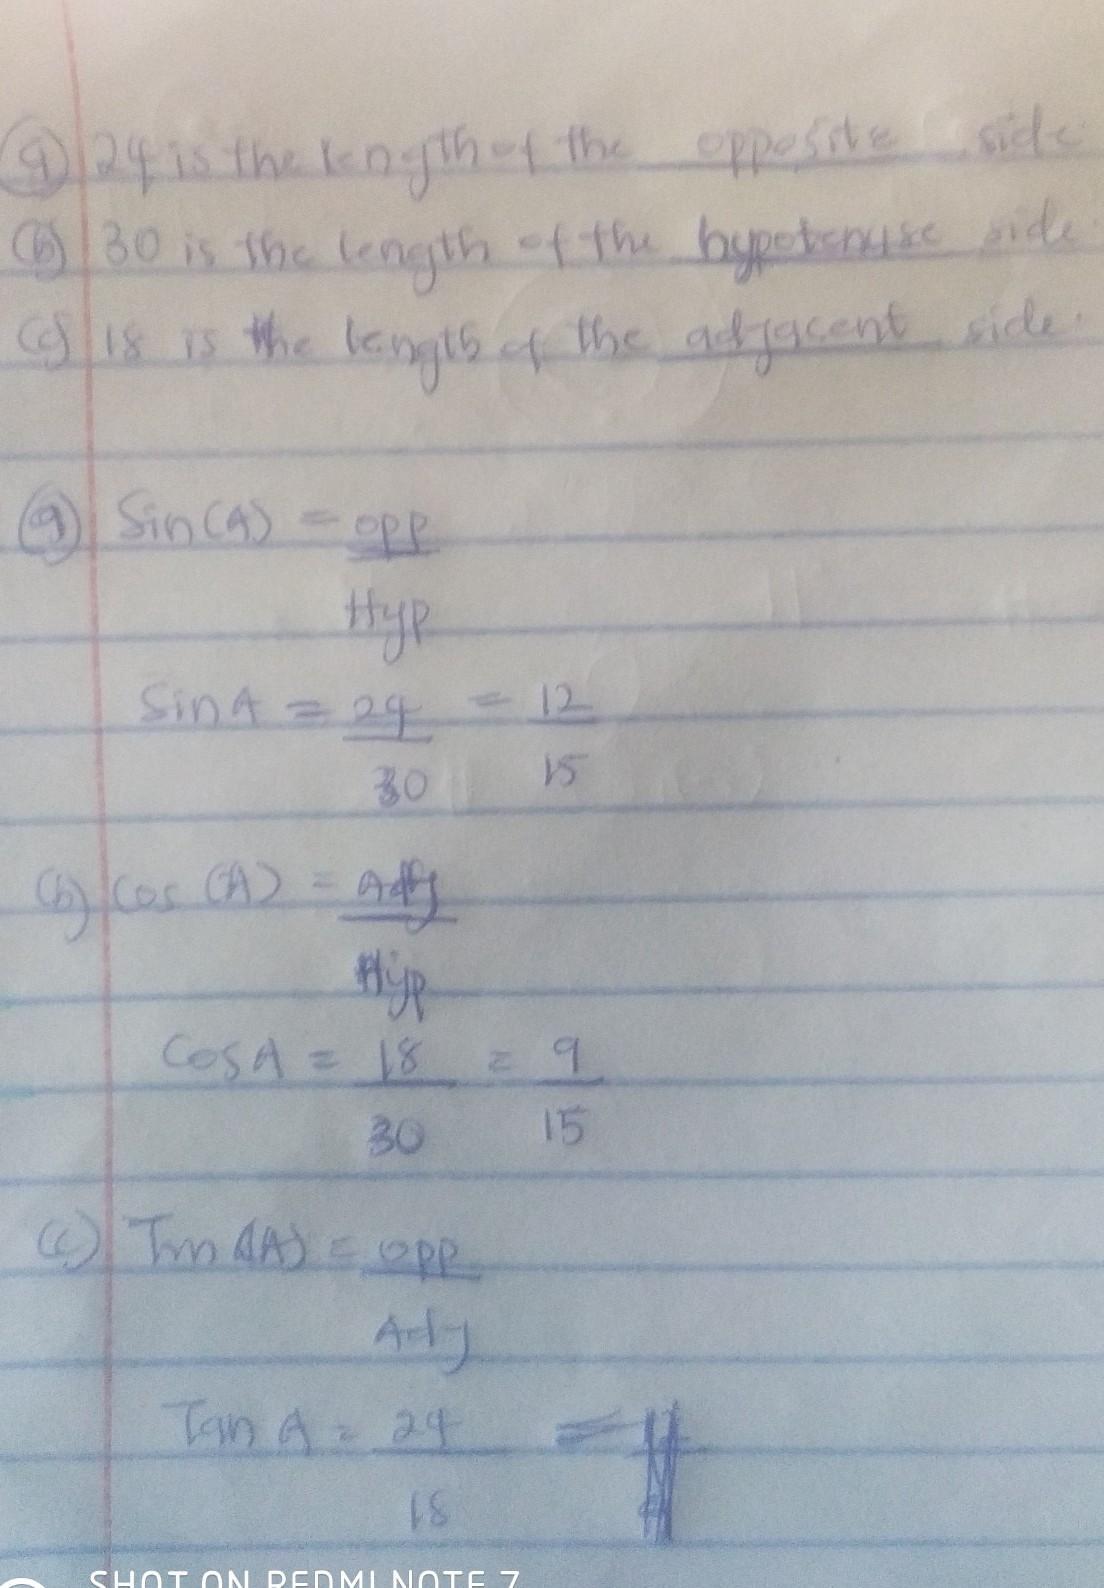 (a) 24 is the length of the opposite side
(b) 30 is the length of the hypotenuse side.
(c) 18 is the length of the adjacent side.
(a) Sin(A) = opp
Hyp
Sin A = 24 = 12
30 15
(b) Cos (A) = Adj
Hyp
Cos A = 18 = 9
30 15
(c) Tan (A) = opp
Adj
Tan A = 24 =
18
SHOT ON REDMI NOTE 7